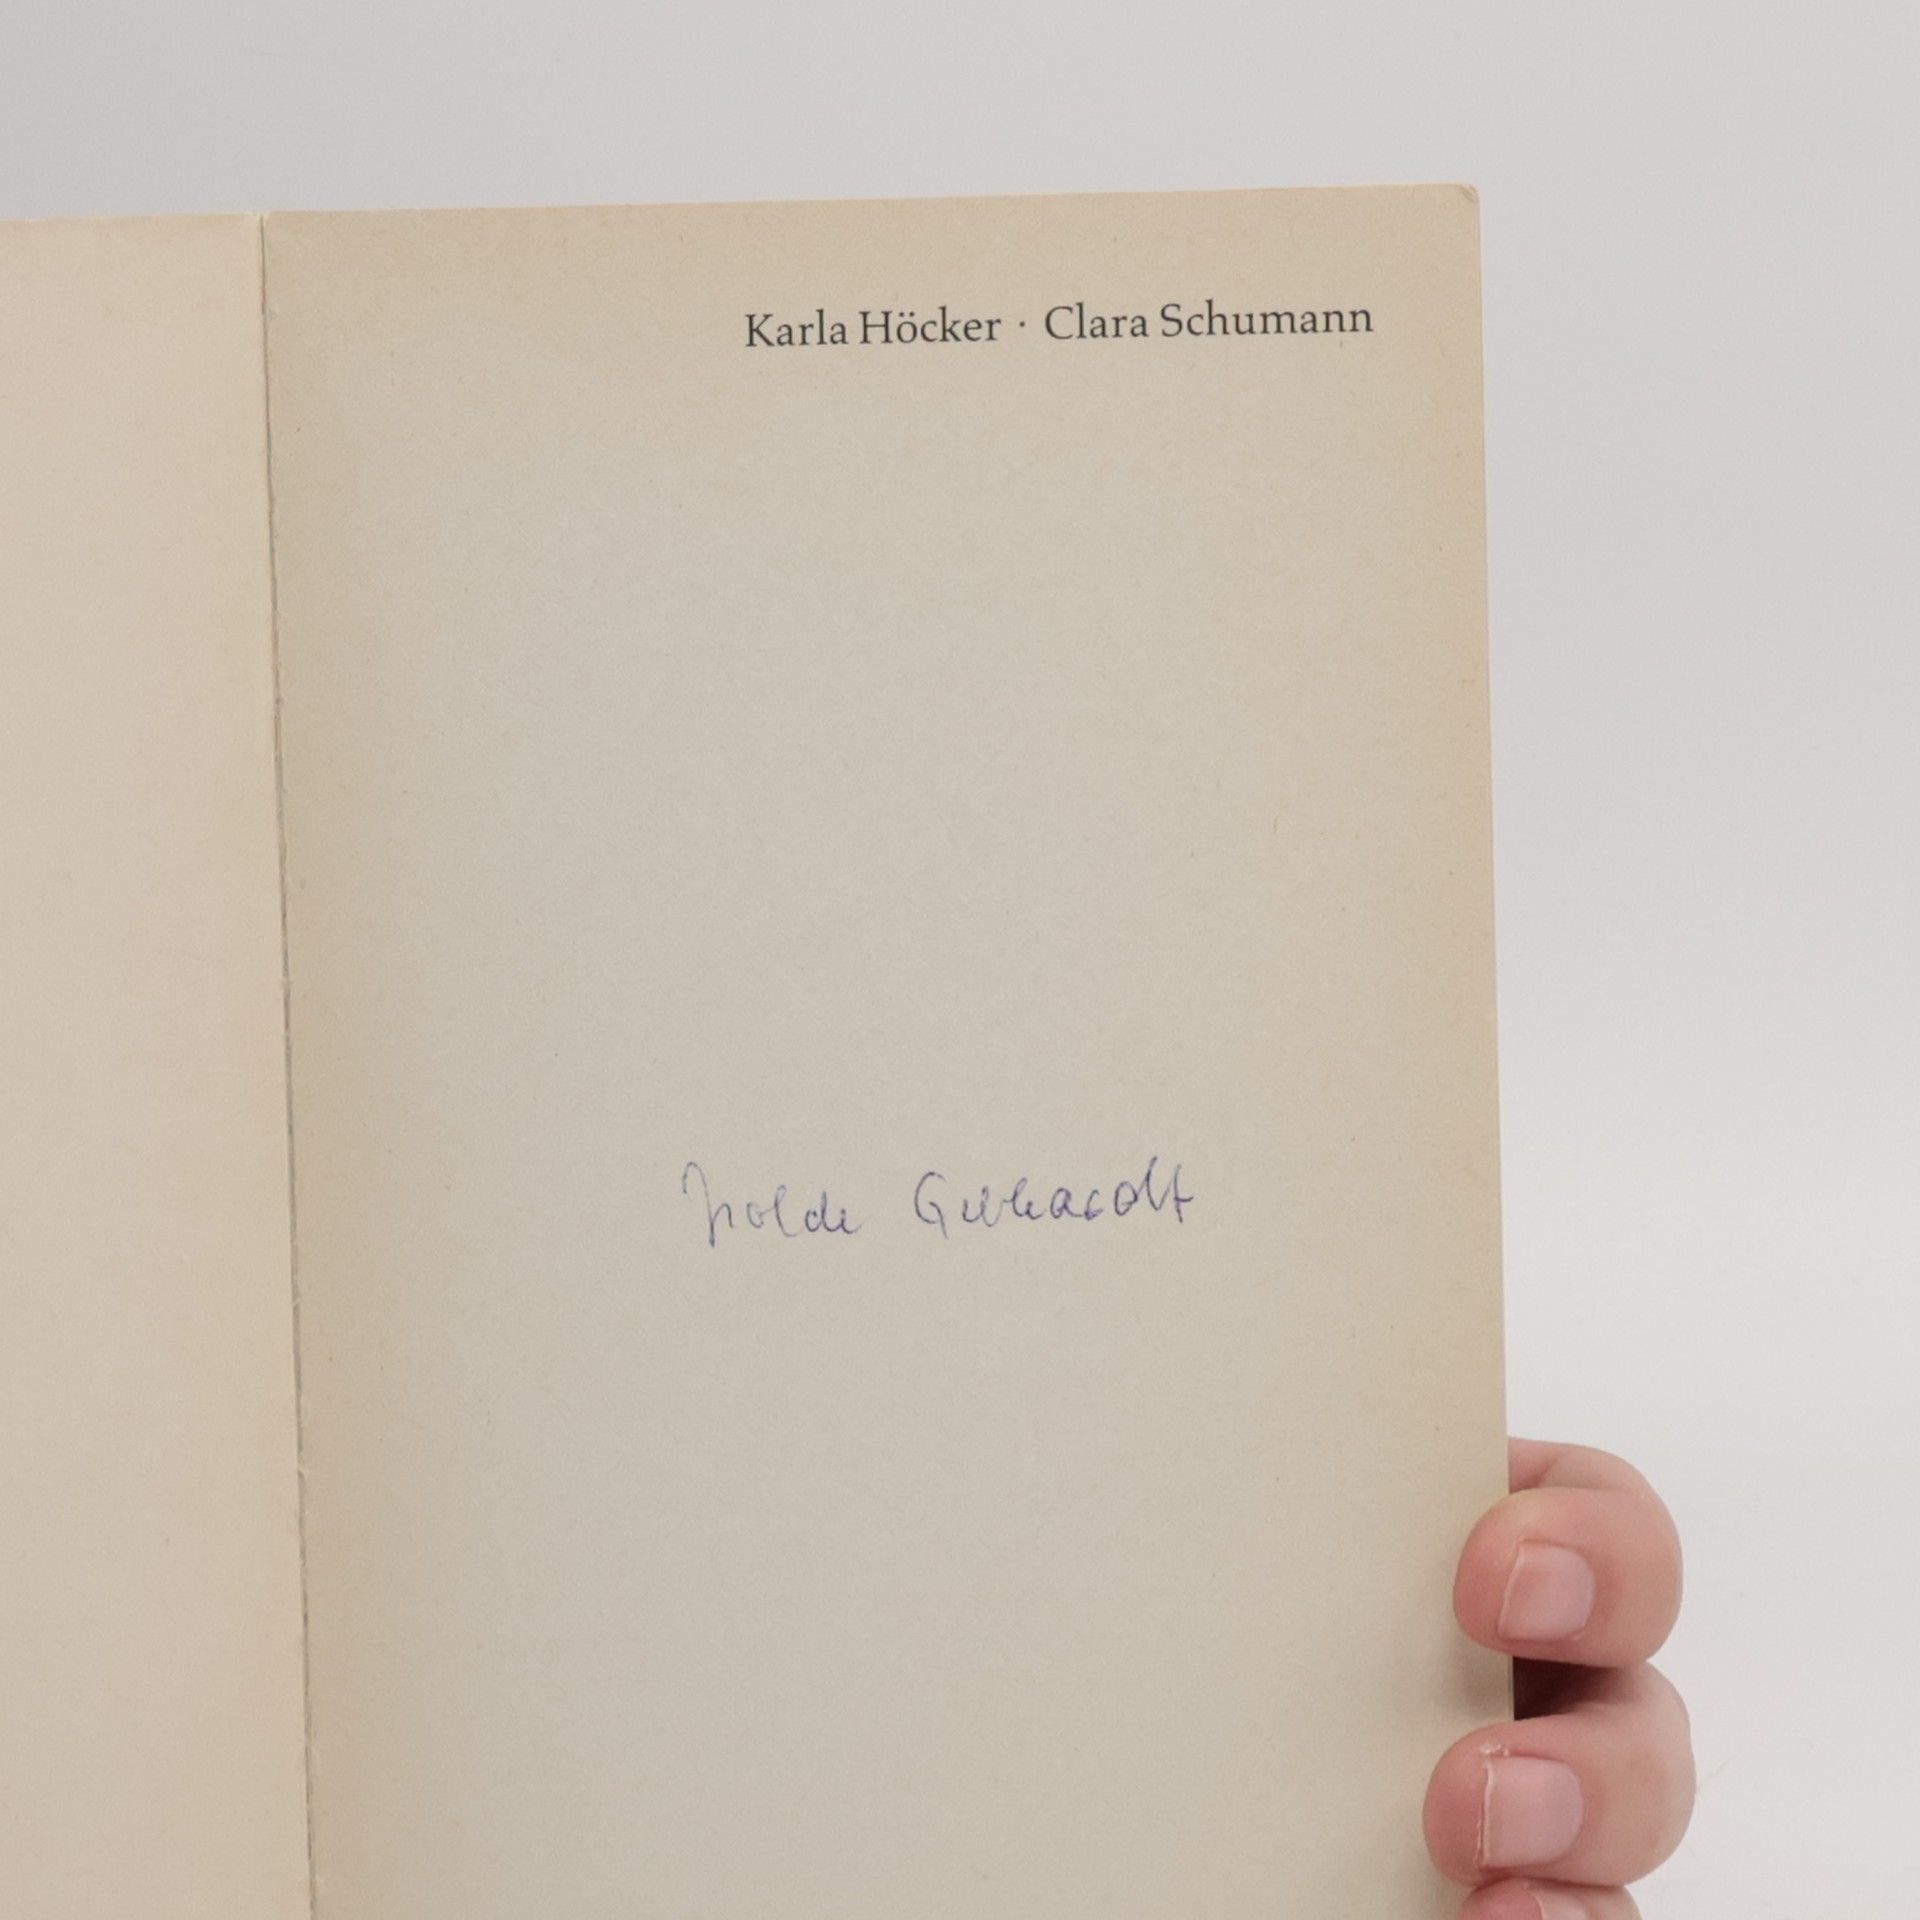 Karla Höcker · Clara Schumann
Isolde Gebhardt